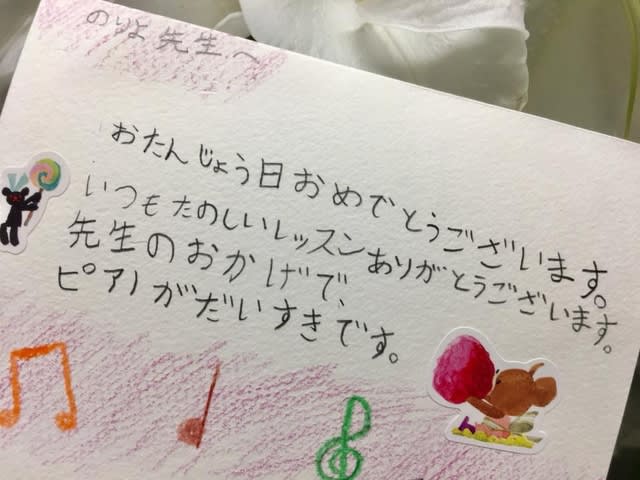 のりよ先生へ
おたんじょう日おめでとうございます。
いつもたのしいレッスンありがとうございます。
先生のおかげで、
ピアノがだいすきです。